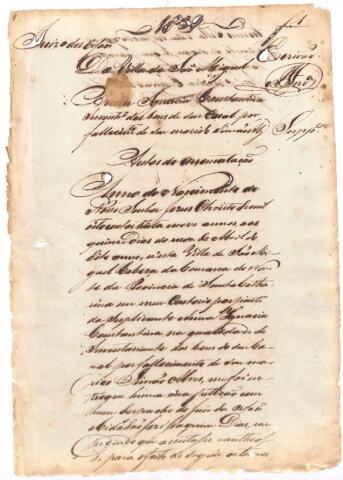 1839
Juizo dos Orfaos
Escrivão
Da Villa de São Miguel
Anna Ignacia Constantina
dos bens do seu casal por
fallecimto de seu marido Simão
Suppe
Autos de arrematação
Anno do Nascimento de
Nosso Senhor Jesus Christo de mil
oito centos trinta e nove annos, aos
quinze dias do mez de Abril do
dito anno, nesta Villa de São Mi
guel Cabeça da Comarca do Norte
da Provincia de Santa Catha
rina em meu Cartorio por parte
da Suplicante Anna Ignacia
Constantina na qualidade de
Inventariante dos bens do seu Ca
sal por fallecimento de seu ma
rido Simão Alves, me foi en
tregue huma sua petição com
hum despacho do juiz de orfãos
o Cidadão Joaquim Dias, re
querindo que
para effeito de seguir os termos